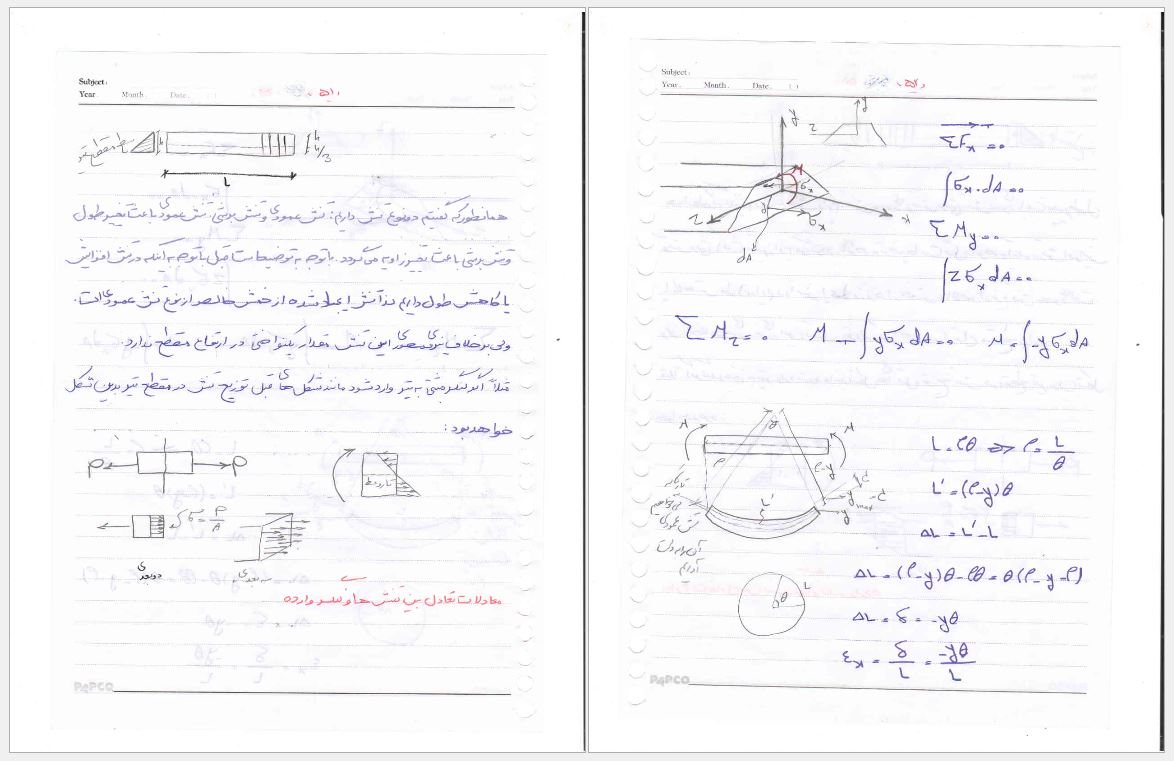 Subject:
Year Month. Date. ( )
h
h
h/3
L
همانطور که گفتیم دو نوع تنش داریم: تنش عمودی و تنش برشی، تنش عمودی باعث تغییر طول
و تنش برشی باعث تغییر زاویه می‌گردد. با توجه به توضیحات قبل با توجه به اینکه در تنش افزایش
یا کاهش طول داریم لذا تنش ایجاد شده از خمش خالص از نوع تنش عمودی است.
ولی برخلاف نیروی محوری این تنش مقدار یکنواختی در ارتفاع مقطع ندارد.
مثلاً اگر لنگر مثبتی به تیر وارد شود مانند شکل‌های قبل توزیع تنش در مقطع تیر بدین شکل
خواهد بود:
P P
σ = P/A
دوبعدی
سه بعدی
معادلات تعادل بین تنش ها و لنگر وارده
PAPCO
Subject:
Year. Month. Date. ( )
y
z
y
M
σx
z
y
σx
x
dA
ΣFx = 0
∫σx.dA = 0
ΣMy = 0
∫zσx dA = 0
ΣMz = 0 M + ∫yσx dA = 0 M = ∫-yσx dA
M
θ
M
ρ
ρ-y
L'
ymax
y
تنش عمودی
L = ρθ ⇒ ρ = L/θ
L' = (ρ-y)θ
ΔL = L' - L
ΔL = (ρ-y)θ - ρθ = θ(ρ-y-ρ)
θ
L
ΔL = δ = -yθ
εx = δ/L = -yθ/L
PAPCO